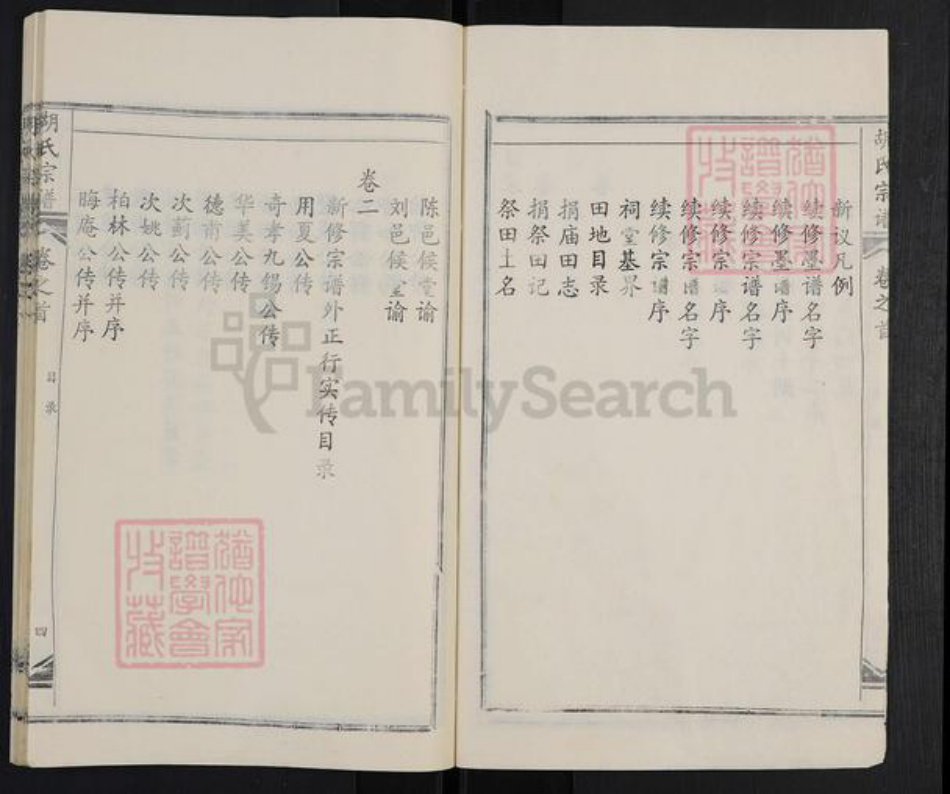 胡氏宗谱 卷之首
新议凡例
续修墨谱名字
续修墨谱序
续修宗谱名字
续修宗谱序
续修宗谱名字
续修宗谱序
祠堂基界
田地目录
捐庙田志
捐祭田记
祭田土名
陈邑侯堂谕
刘邑侯堂谕
卷二
新修宗谱外正行实传目录
用夏公传
奇孝九锡公传
华美公传
德甫公传
次蓟公传
次姚公传
柏林公传并序
晦庵公传并序
胡氏宗谱 卷之首 目录 四
FamilySearch
犹他家谱学会收藏
犹他家譜學會收藏